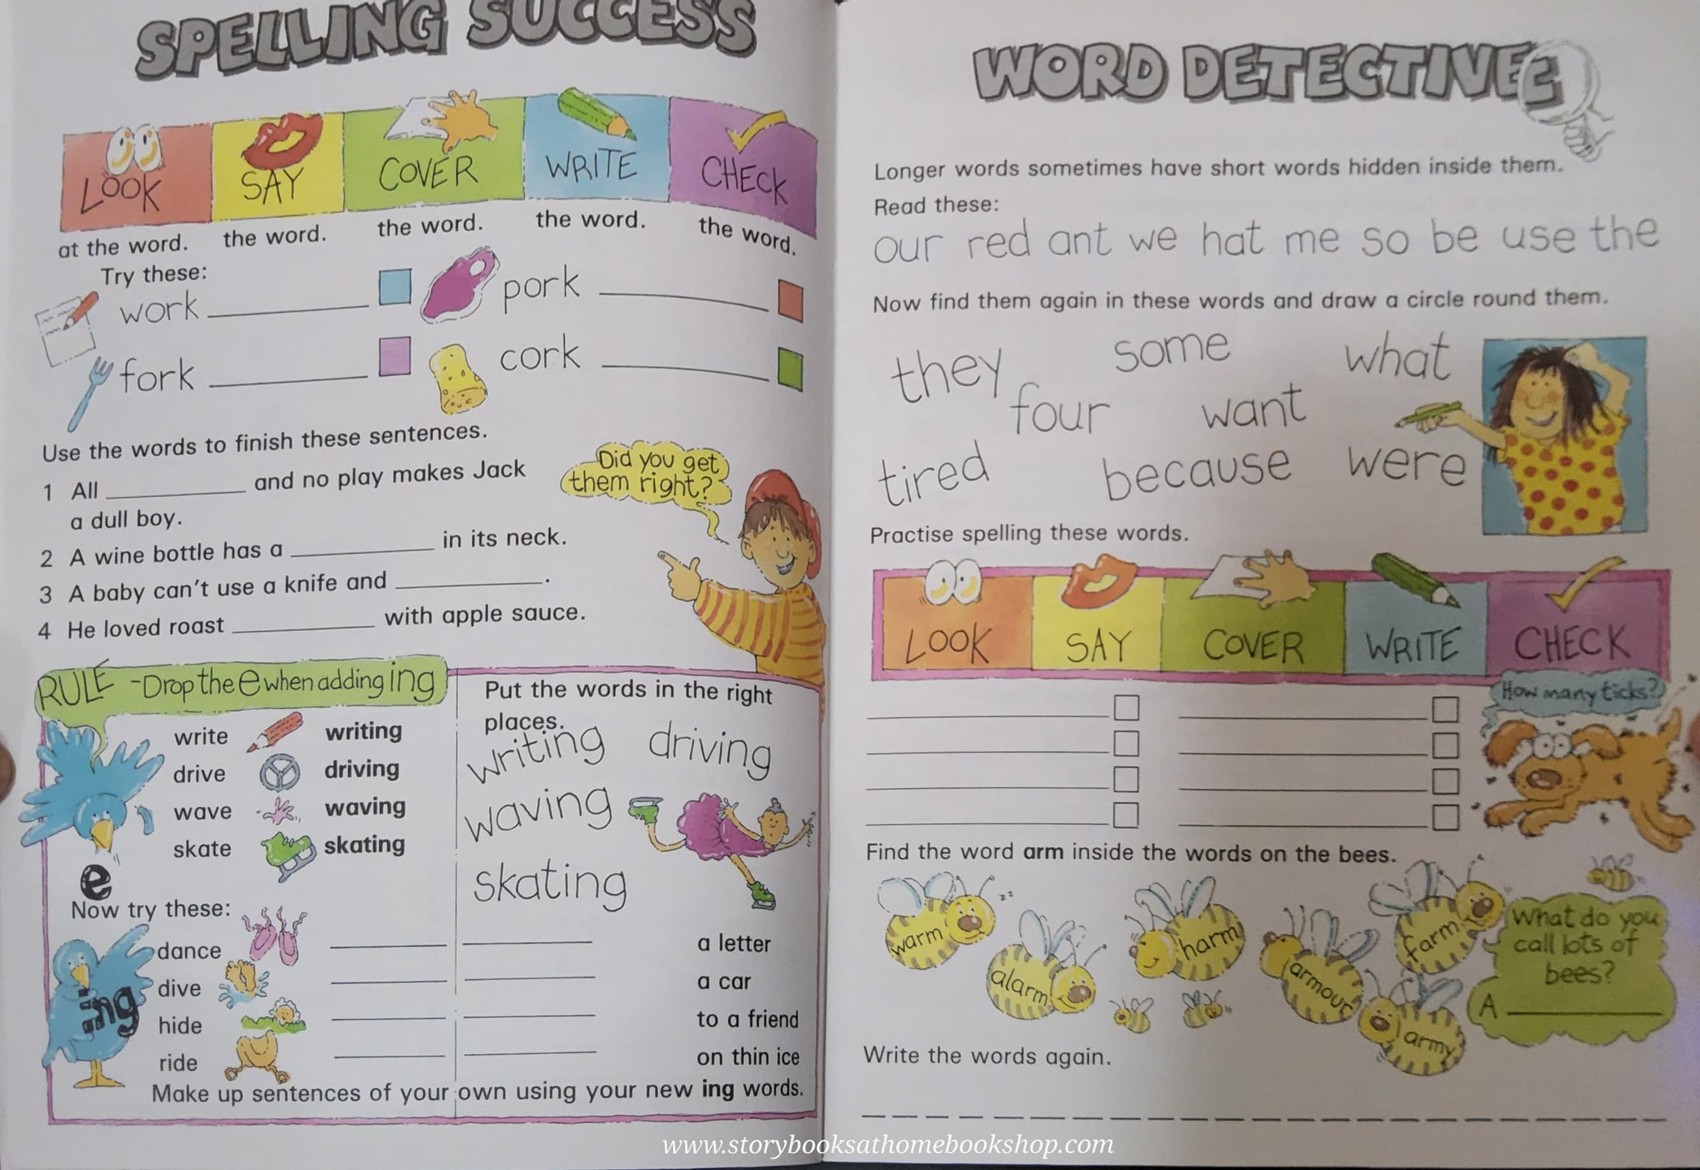 SPELLING SUCCESS
LOOK SAY COVER WRITE CHECK
at the word. the word. the word. the word. the word.
Try these:
work pork
fork cork
Use the words to finish these sentences.
Did you get
them right?
1 All __________ and no play makes Jack
a dull boy.
2 A wine bottle has a __________ in its neck.
3 A baby can't use a knife and __________.
4 He loved roast __________ with apple sauce.
RULE -Drop the e when adding ing
write writing
drive driving
wave waving
skate skating
e
Now try these:
dance
dive
ing
hide
ride
Put the words in the right
places.
writing driving
waving
skating
a letter
a car
to a friend
on thin ice
Make up sentences of your own using your new ing words.
WORD DETECTIVE
Longer words sometimes have short words hidden inside them.
Read these:
our red ant we hat me so be use the
Now find them again in these words and draw a circle round them.
they some what
four want
tired because were
Practise spelling these words.
LOOK SAY COVER WRITE CHECK
How many ticks?
Find the word arm inside the words on the bees.
warm alarm harm armour farm army
What do you
call lots of
bees?
A __________
Write the words again.
www.storybooksathomebookshop.com